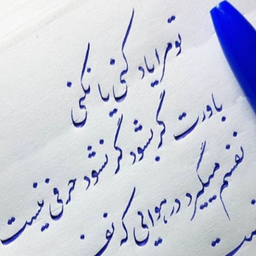 تو مرا یاد کنی یا نکنی
باورت گر بشود گر نشود حرفی نیست
نفسم میگیرد در هوایی که نف
نیست